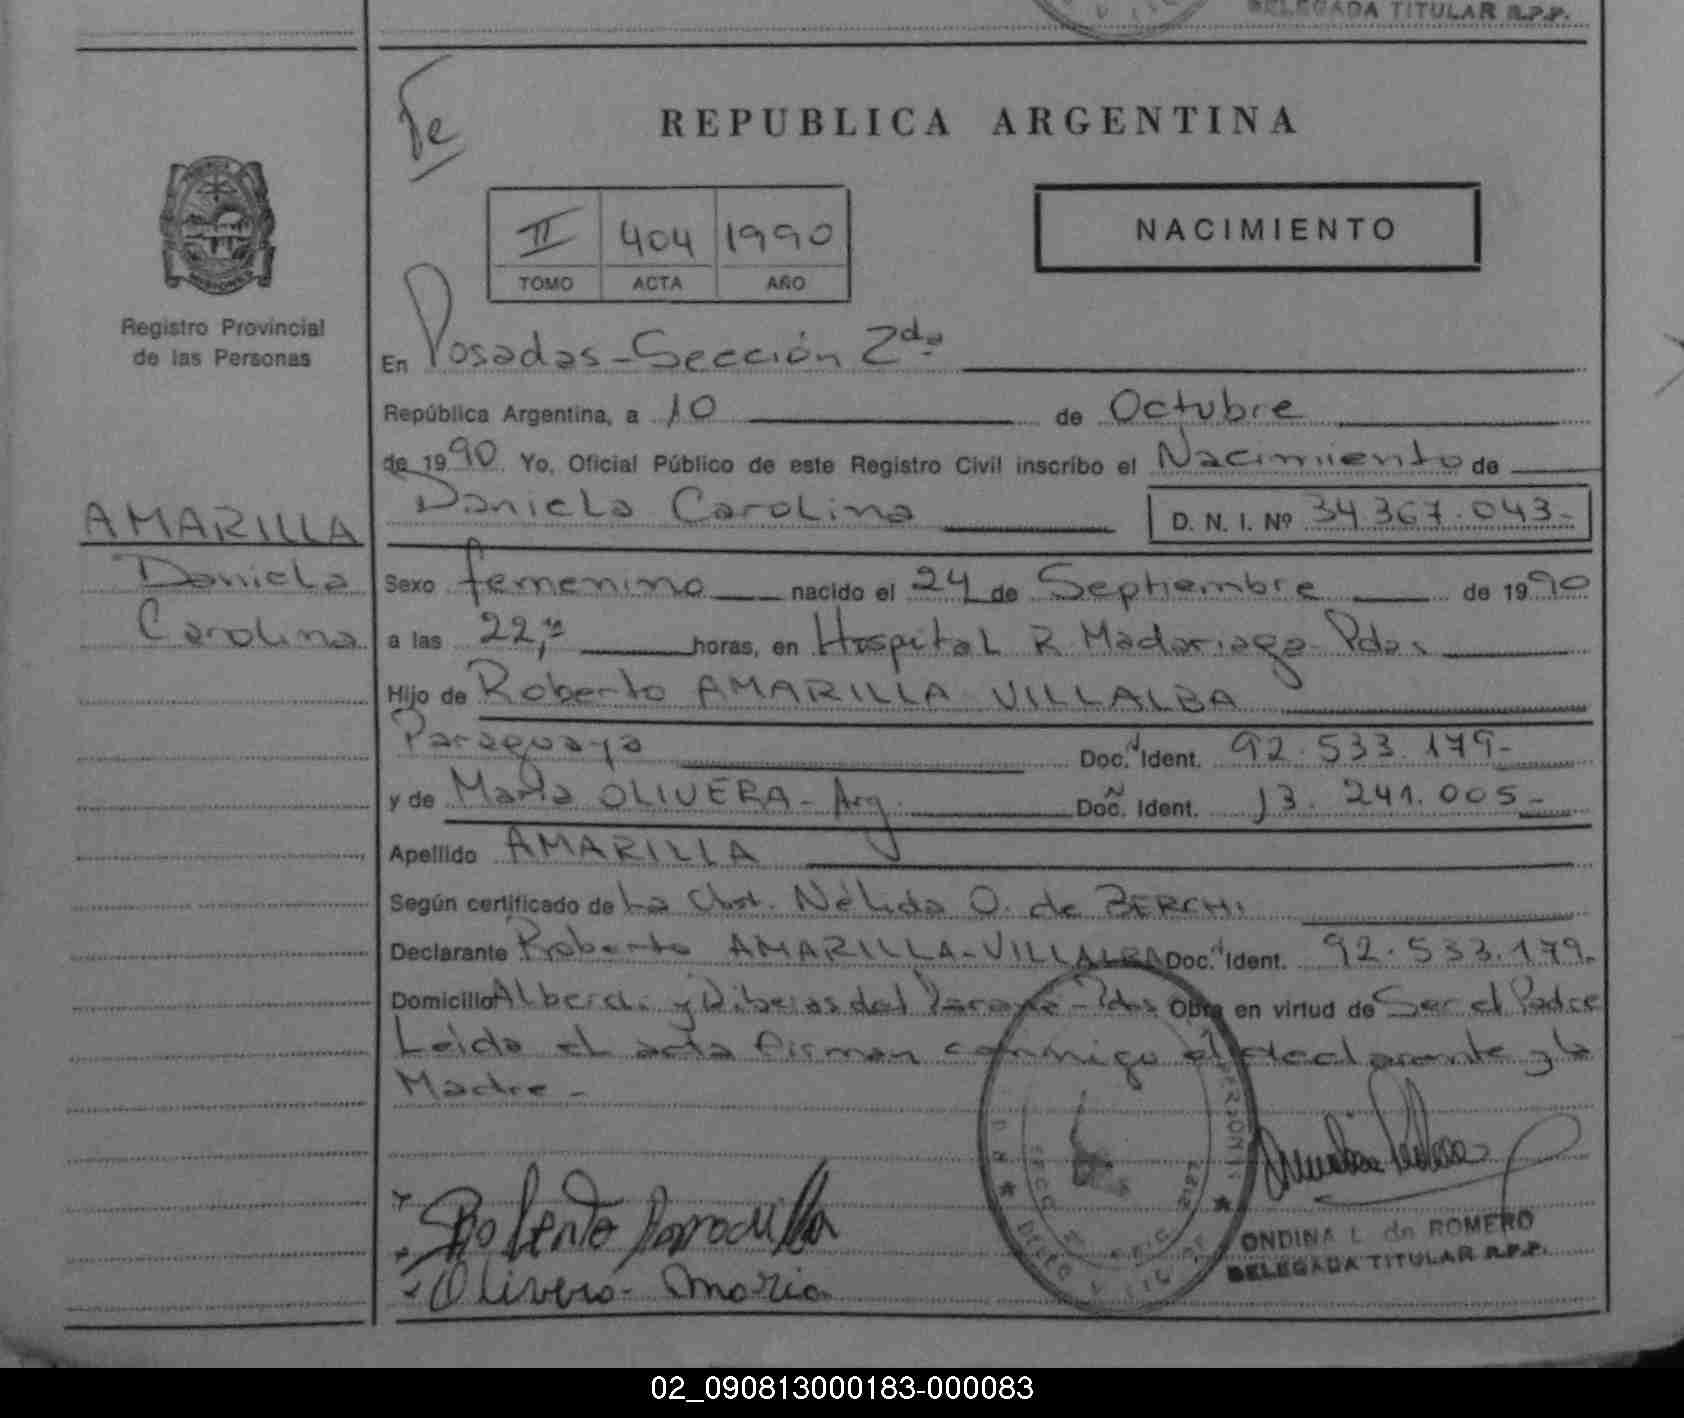 DELEGADA TITULAR R.P.P.
Fe
REPUBLICA ARGENTINA
II 404 1990
TOMO ACTA AÑO
NACIMIENTO
Registro Provincial
de las Personas
En Posadas - Sección 2da
República Argentina, a 10 de Octubre
de 1990 Yo, Oficial Público de este Registro Civil inscribo el Nacimiento de
Daniela Carolina D. N. I. Nº 34.367.043-
AMARILLA
Daniela
Carolina
Sexo femenino nacido el 24 de Septiembre de 1990
a las 22, horas, en Hospital R. Madariaga Pdas
Hijo de Roberto AMARILLA VILLALBA
Paraguaya Doc. Ident. 92.533.179-
y de María OLIVERA - Arg. Doc. Ident. 13.241.005-
Apellido AMARILLA
Según certificado de La Obst. Nélida O. de BERCHI
Declarante Roberto AMARILLA-VILLALBA Doc. Ident. 92.533.179.
Domicilio Alberdi y Riberas del Paraná - Pdas Obra en virtud de Ser el Padre
Leída el acta firman conmigo el declarante y la
Madre -
Roberto Amarilla
Olivera - Maria
ONDINA L. de ROMERO
DELEGADA TITULAR R.P.P.
02_090813000183-000083